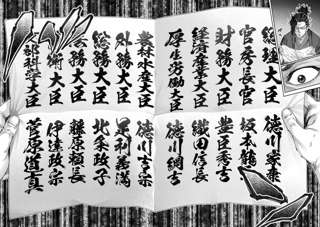 総理大臣 徳川家康
官房長官 坂本龍
財務大臣 豊臣秀吉
経済産業大臣 織田信長
厚生労働大臣 徳川綱吉
農林水産大臣 徳川吉宗
外務大臣 足利義満
総務大臣 北条政子
法務大臣 藤原頼長
衛大臣 伊達政宗
部科学大臣 菅原道真